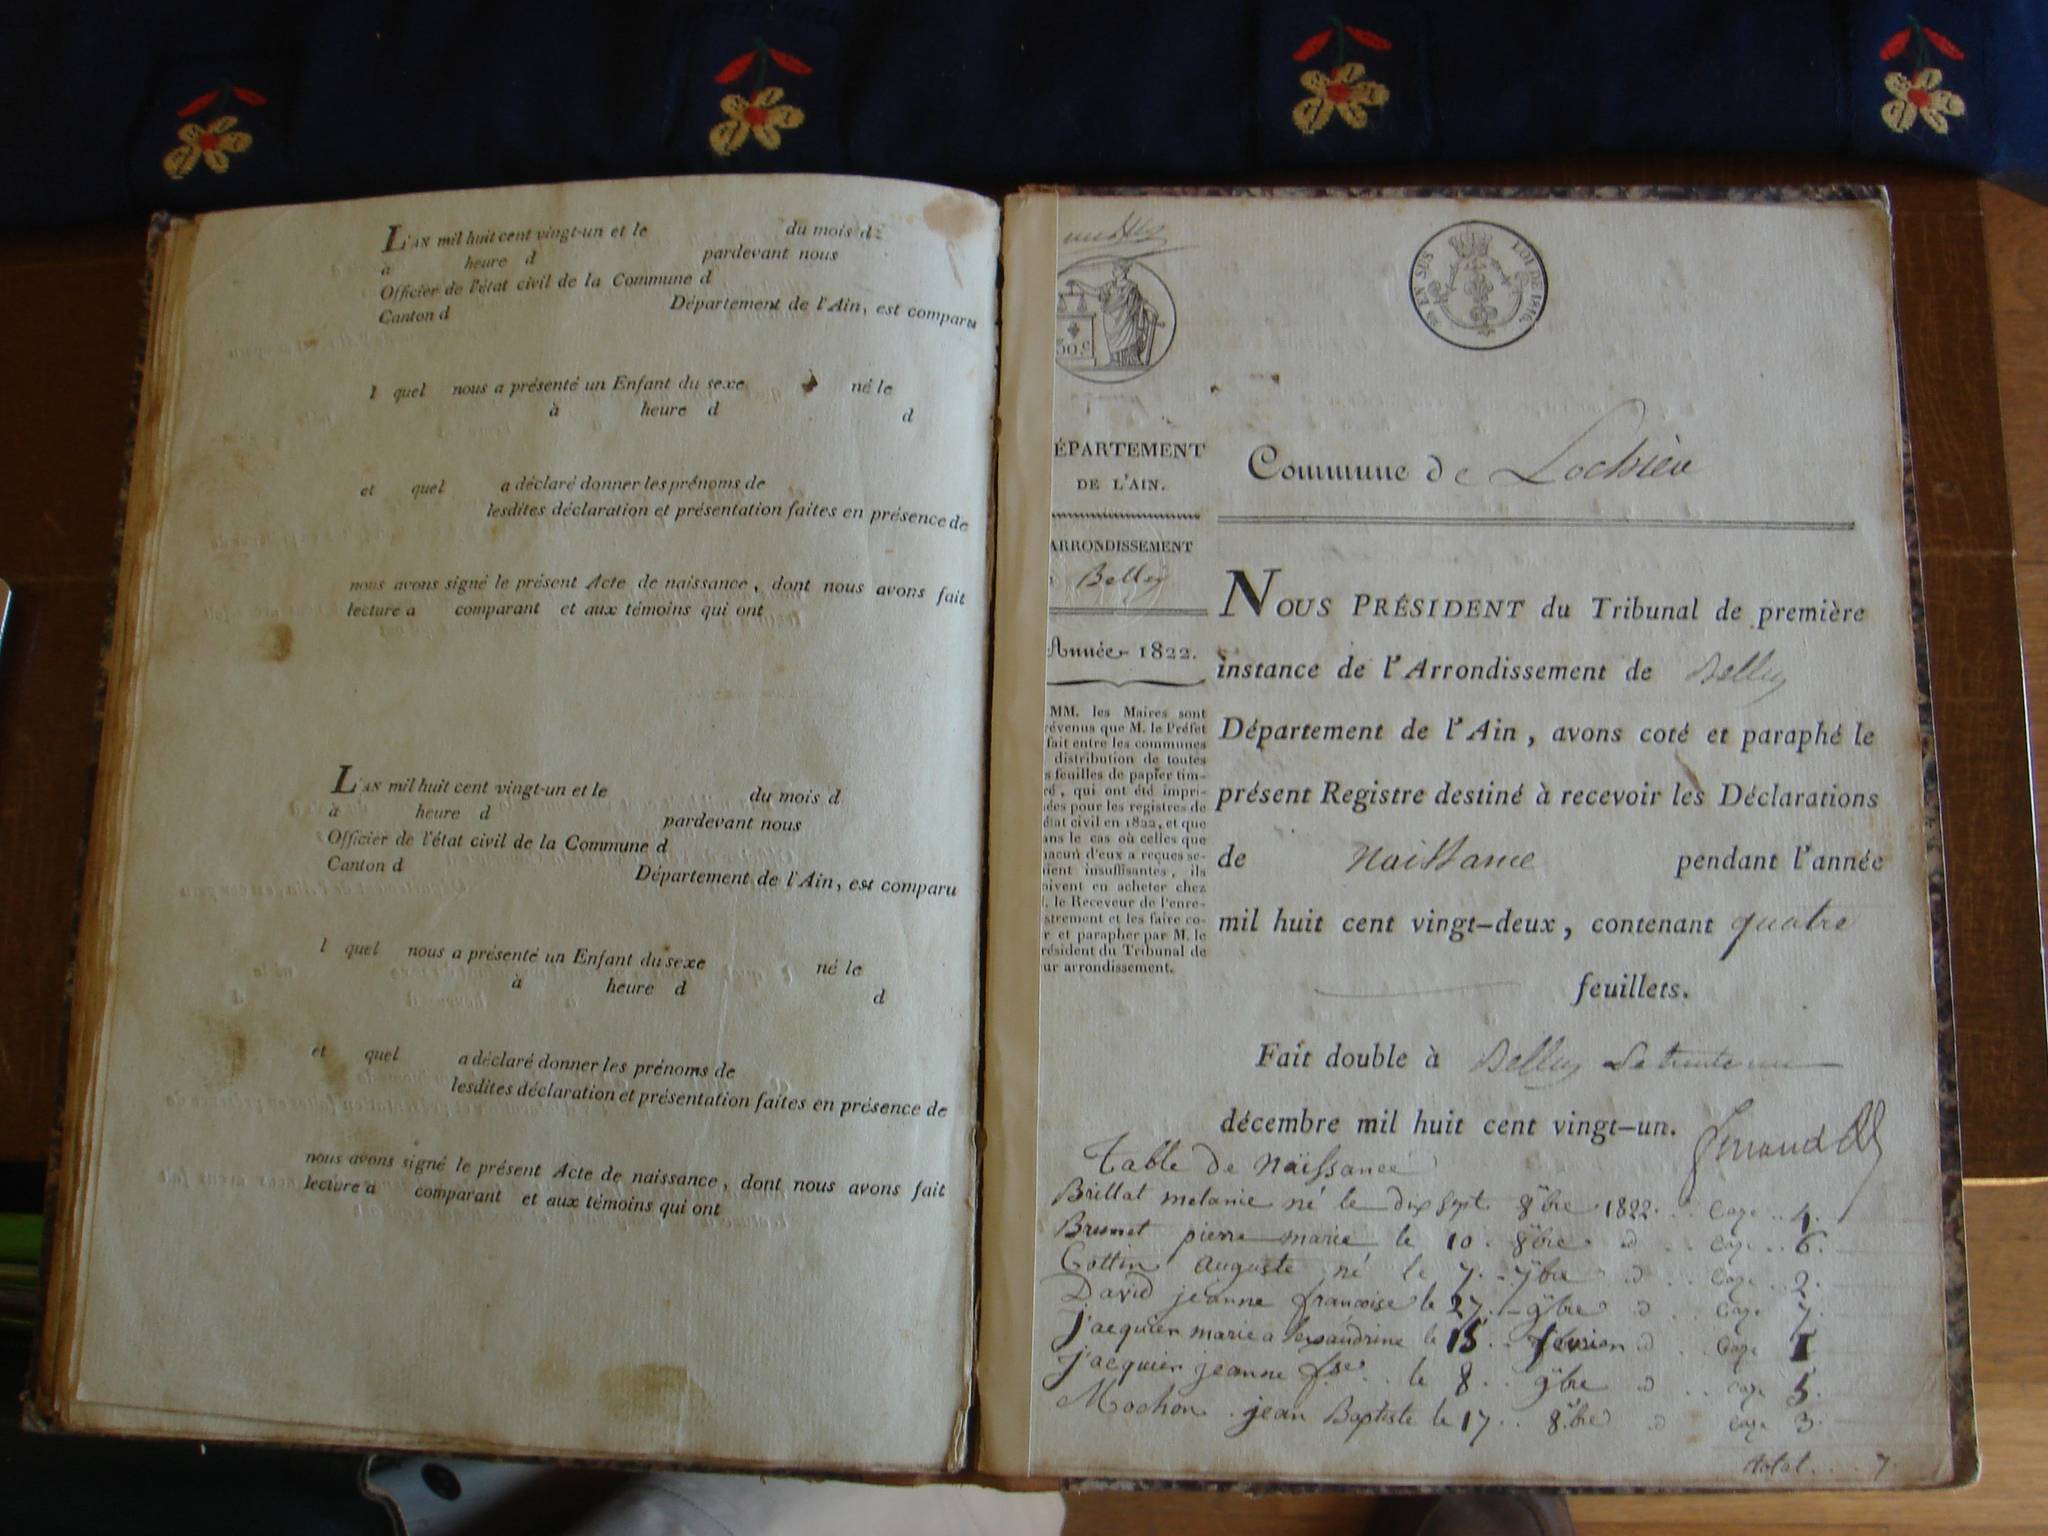 L'AN mil huit cent vingt-un et le du mois d
à heure d pardevant nous
Officier de l'état civil de la Commune d
Canton d Département de l'Ain, est comparu
l quel nous a présenté un Enfant du sexe né le
à heure d d
et quel a déclaré donner les prénoms de
lesdites déclaration et présentation faites en présence de
nous avons signé le présent Acte de naissance, dont nous avons fait
lecture a comparant et aux témoins qui ont
L'AN mil huit cent vingt-un et le du mois d
à heure d pardevant nous
Officier de l'état civil de la Commune d
Canton d Département de l'Ain, est comparu
l quel nous a présenté un Enfant du sexe né le
à heure d d
et quel a déclaré donner les prénoms de
lesdites déclaration et présentation faites en présence de
nous avons signé le présent Acte de naissance, dont nous avons fait
lecture a comparant et aux témoins qui ont
EN SUS LOI DE 1816.
50.c
ÉPARTEMENT
DE L'AIN.
ARRONDISSEMENT
Belley
Année 1822.
MM. les Maires sont
révenus que M. le Préfet
fait entre les communes
distribution de toutes
s feuilles de papier tim-
ré, qui ont été impri-
ées pour les registres de
état civil en 1822, et que
ans le cas où celles que
hacun d'eux a reçues se-
ient insuffisantes, ils
oivent en acheter chez
. le Receveur de l'enre-
strement et les faire co-
r et parapher par M. le
résident du Tribunal de
ur arrondissement.
Commune de Lochieu
NOUS PRÉSIDENT du Tribunal de première
instance de l'Arrondissement de Belley
Département de l'Ain, avons coté et paraphé le
présent Registre destiné à recevoir les Déclarations
de Naissance pendant l'année
mil huit cent vingt-deux, contenant quatre
feuillets.
Fait double à Belley le trente un
décembre mil huit cent vingt-un.
Table de Naissance
Brillat melanie né le dix sept 8bre 1822. Cage 4.
Brunet pierre marie le 10. 8bre id Cage 6.
Cottin Auguste né le 7. 7bre id Cage 2.
David jeanne françoise le 27. 9bre id Cage 7.
jacquier marie alexandrine le 15 février id Cage 1
jacquier jeanne fse le 8 9bre id Cage 5.
Mochon jean Baptiste le 17 8bre id Cage 3.
total 7